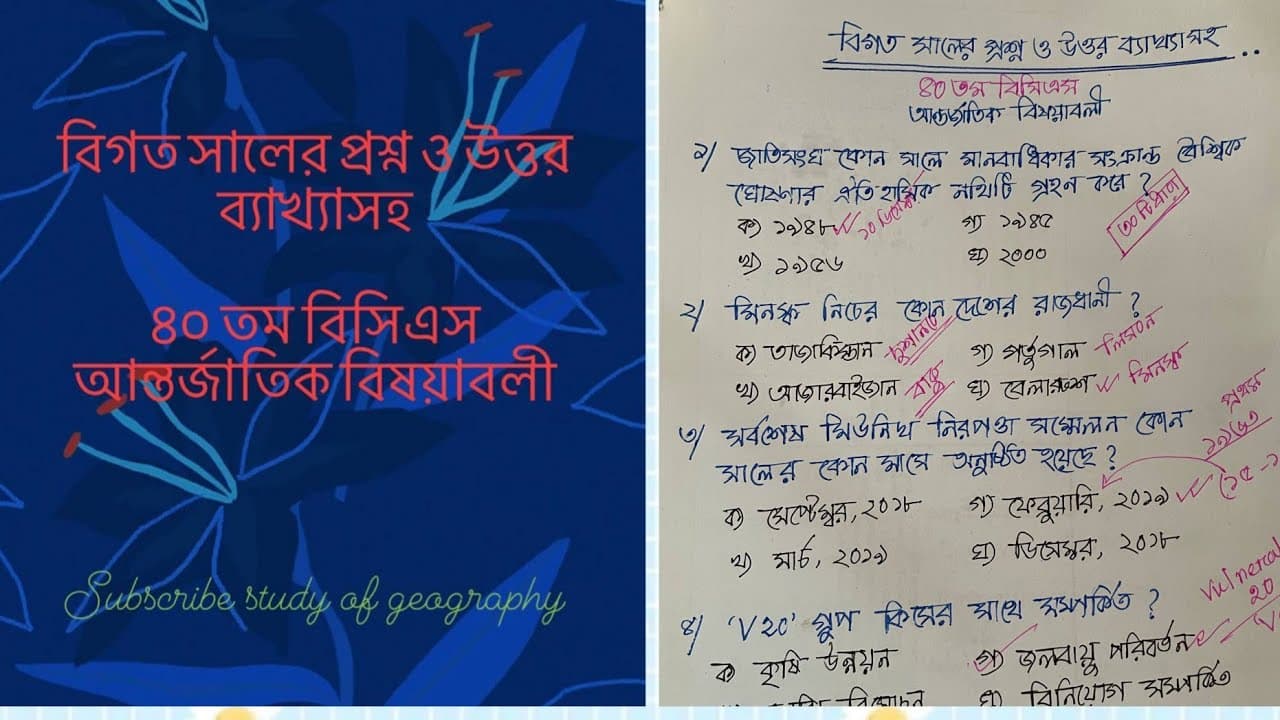 বিগত সালের প্রশ্ন ও উত্তর
ব্যাখ্যাসহ
৪০ তম বিসিএস
আন্তর্জাতিক বিষয়াবলী
Subscribe study of geography
বিগত সালের প্রশ্ন ও উত্তর ব্যাখ্যাসহ ..
৪০ তম বিসিএস
আন্তর্জাতিক বিষয়াবলী
১/ জাতিসংঘ কোন সালে মানবাধিকার সংক্রান্ত বৈশ্বিক
ঘোষণার ঐতিহাসিক নথিটি গ্রহন করে ?
ক) ১৯৪৮ ১০ ডিসেম্বর গ) ১৯৪৫ ৩০ টি ধারা
খ) ১৯৫৬ ঘ) ২০০০
২/ মিনস্ক নিচের কোন দেশের রাজধানী ?
ক) তাজাকিস্তান দুশানবে গ) পর্তুগাল লিসবন
খ) আজারবাইজান বাকু ঘ) বেলারুশ মিনস্ক
৩/ সর্বশেষ মিউনিখ নিরাপত্তা সম্মেলন কোন
সালের কোন মাসে অনুষ্ঠিত হয়েছে ?
প্রথম
১৯৬৩
ক) সেপ্টেম্বর, ২০১৮ গ) ফেব্রুয়ারি, ২০১৯ (১৫ -১
খ) মার্চ, ২০১৯ ঘ) ডিসেম্বর, ২০১৮
৪/ 'V20' গ্রুপ কিসের সাথে সম্পর্কিত ?
Vulnerab
20
ক) কৃষি উন্নয়ন গ) জলবায়ু পরিবর্তন
ঘ) বিনিয়োগ সম্পর্কিত